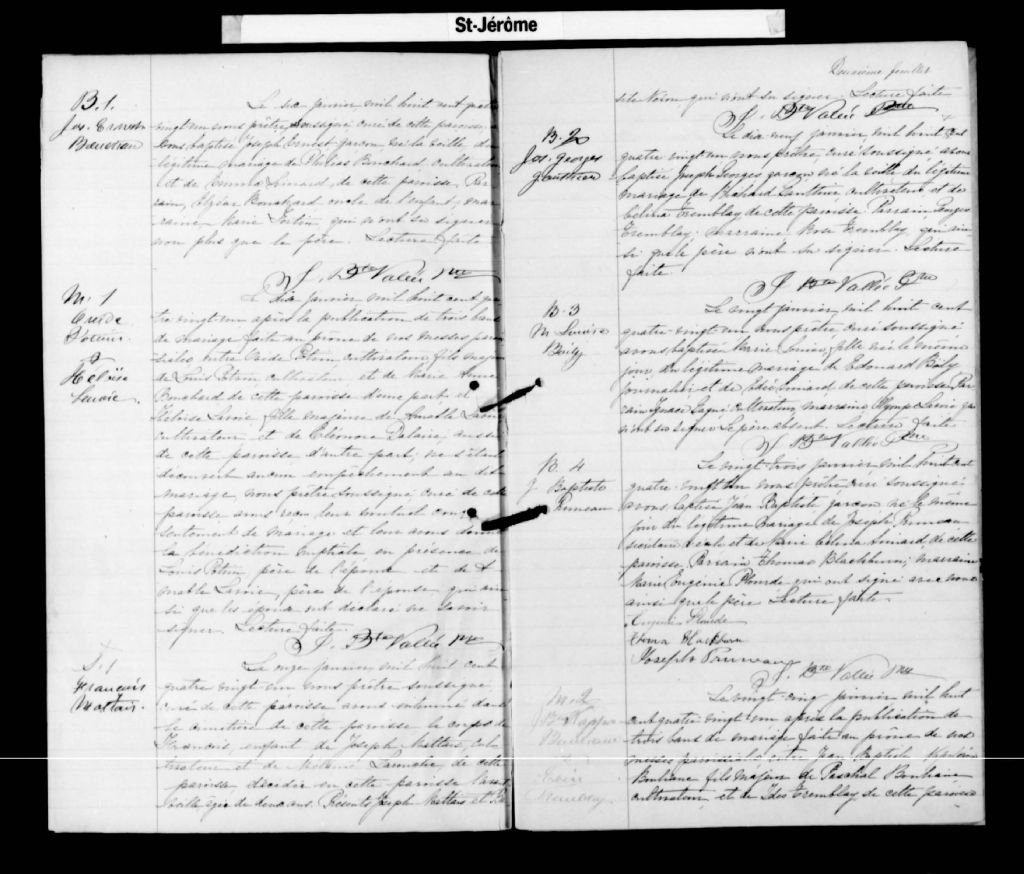 St-Jérôme
B. 1.
Jos. Ernest
Bouchard
Le six janvier mil huit cent quatre
vingt un nous prêtre soussigné curé de cette paroisse a
vons baptisé Joseph Ernest garçon né la veille du
légitime mariage de Philéas Bouchard cultivateur
et de Emma Simard, de cette paroisse. Par
rain, Elzéar Bouchard oncle de l'enfant; mar
raine, Marie Fortin qui n'ont su signer
non plus que le père. Lecture faite
J. Bte Vallée Ptre
M. 1
&
Héloïse
Lavoie
Le dix janvier mil huit cent qua
tre vingt un après la publication de trois bans
de mariage faite au prône de nos messes parois
siales entre Potvin cultivateur, fils majeur
de Louis Potvin cultivateur et de Marie
Bouchard de cette paroisse d'une part et
Héloïse Lavoie fille majeure de Amable Lavoie
cultivateur et de Eléonore Dalaire, aussi
de cette paroisse d'autre part; ne s'étant
découvert aucun empêchement au dit
mariage nous prêtre soussigné, curé de cette
paroisse avons reçu leur mutuel con
sentement de mariage et leur avons donné
la bénédiction nuptiale en présence de
Louis Potvin père de l'époux et de A
mable Lavoie, père de l'épouse, qui ain
si que les époux ont déclaré ne savoir
signer. Lecture faite.
J. Bte Vallée Ptre
S. 1
François
Maltais.
Le onze janvier mil huit cent
quatre vingt un nous prêtre soussigné
curé de cette paroisse avons inhumé dans
le cimetière de cette paroisse le corps de
François, enfant de Joseph Maltais, cul
tivateur et de de cette
paroisse, décédé en cette paroisse l'avant
veille âgé de deux ans. Présents Joseph Maltais et
Deuxième feuillet
qui n'ont su signer. Lecture faite
J. Bte Vallée Ptre
B. 2
Jos. Georges
Gauthier
Le dix neuf janvier mil huit cent
quatre vingt un nous prêtre, curé soussigné avons
baptisé Joseph Georges garçon né la veille du légitime
mariage de Gauthier cultivateur et de
Célina Tremblay de cette paroisse. Parrain Georges
Tremblay; marraine Rose Tremblay, qui ain
si que le père n'ont su signer. Lecture
faite.
J. Bte Vallée Ptre
B. 3
M. Louise
Boily
Le vingt janvier mil huit cent
quatre vingt un nous prêtre curé soussigné
avons baptisé Marie Louise, fille née le même
jour, du légitime mariage de Edouard Boily
journalier et de Simard de cette paroisse Par
rain Ignace Gagné cultivateur, marraine Olympe Lavoie qui
n'ont su signer. Le père absent. Lecture faite
J. Bte Vallée Ptre
B. 4
J. Baptiste
Pruneau
Le vingt trois janvier mil huit cent
quatre vingt un nous prêtre curé soussigné
avons baptisé Jean Baptiste garçon né le même
jour du légitime mariage de Joseph Pruneau
et de Marie Célina Simard, de cette
paroisse, Parrain Thomas Blackburn; marraine
Marie Eugénie Plourde qui ont signé avec nous
ainsi que le père Lecture faite.
Eugénie Plourde
Thomas Blackburn
Joseph Pruneau
J. Bte Vallée Ptre
M. 2
J. Bte
Bouliane
&
Tremblay
Le vingt cinq janvier mil huit
cent quatre vingt un après la publication de
trois bans de mariage faite au prône de nos
messes paroissiales entre Jean Baptiste
Bouliane fils majeur de Paschal Bouliane
cultivateur, et de Tremblay de cette paroisse